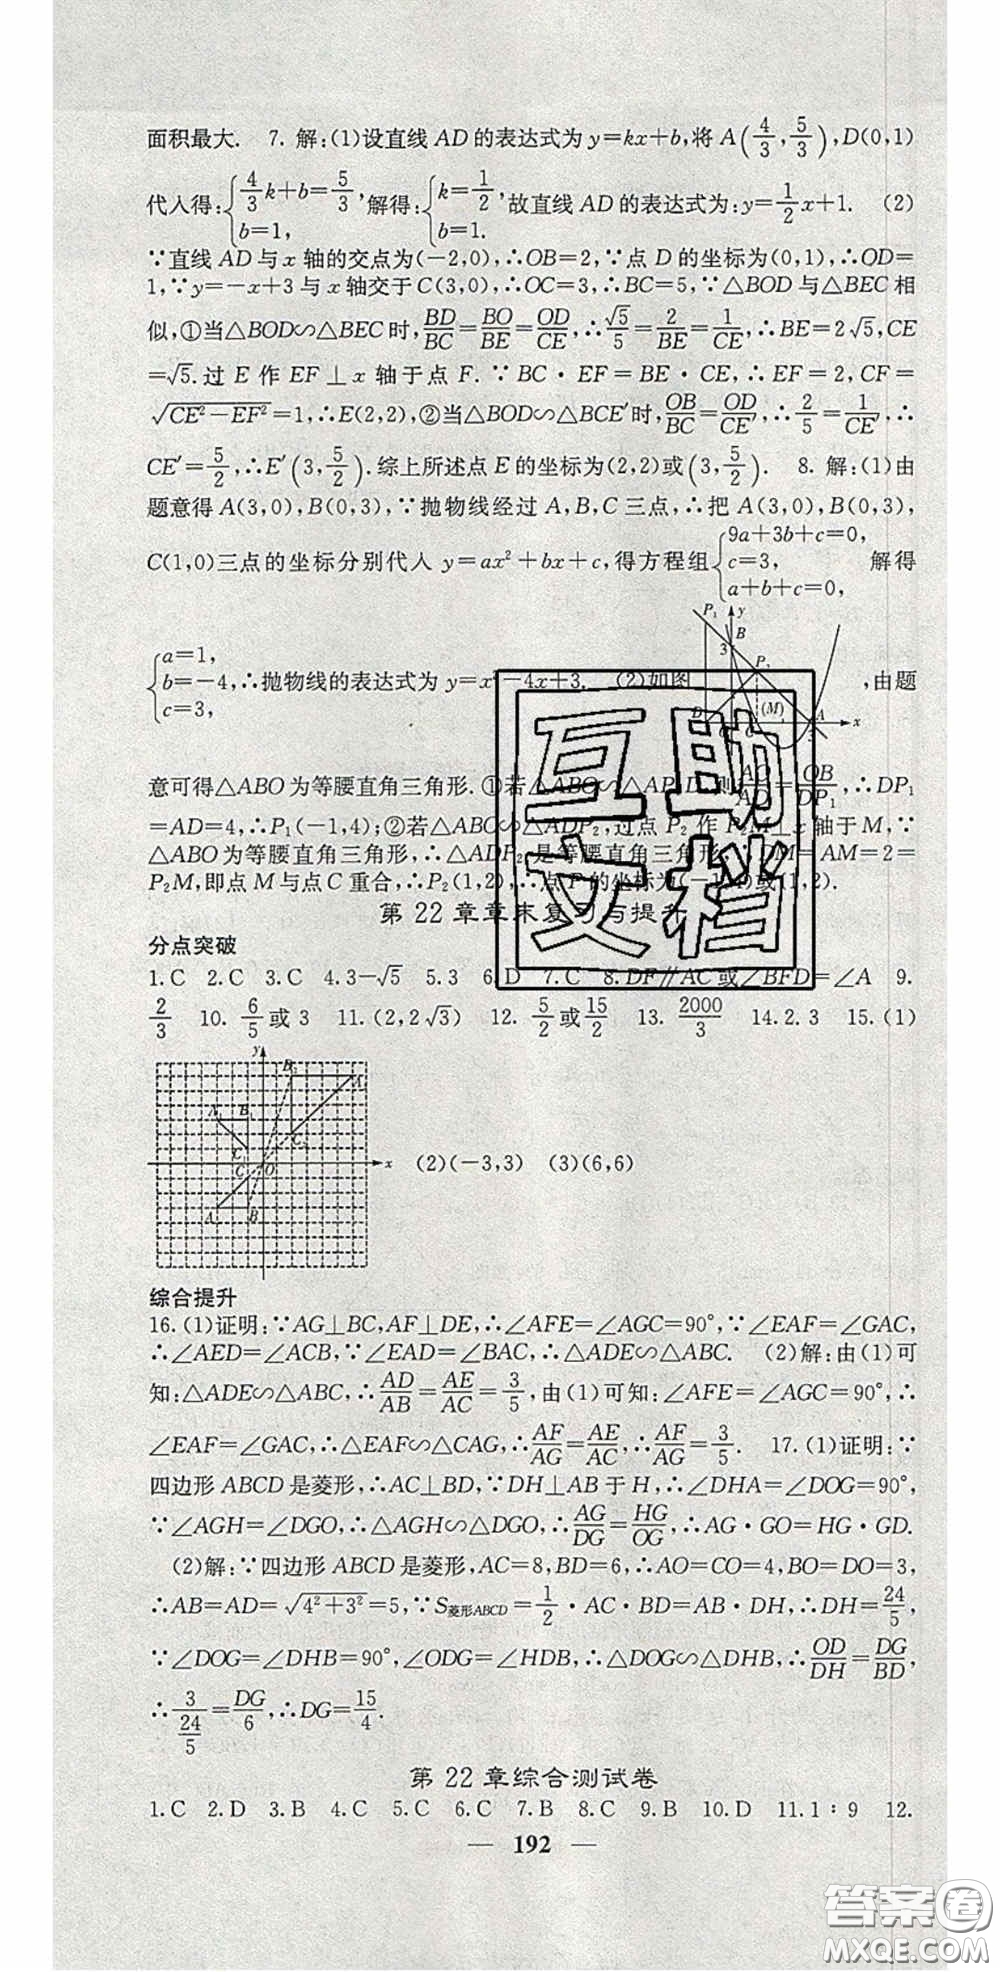 面积最大. 7. 解:(1)设直线 AD 的表达式为 y=kx+b,将 A(4/3,5/3),D(0,1)
代入得:{4/3k+b=5/3, b=1, 解得:{k=1/2, b=1. 故直线 AD 的表达式为:y=1/2x+1. (2)
∵直线 AD 与 x 轴的交点为(-2,0),∴OB=2,∵点 D 的坐标为(0,1),∴OD=
1,∵y=-x+3 与 x 轴交于 C(3,0),∴OC=3,∴BC=5,∵△BOD 与△BEC 相
似,①当△BOD∽△BEC 时,BD/BC=BO/BE=OD/CE,∴√5/5=2/BE=1/CE,∴BE=2√5,CE
=√5.过 E 作 EF⊥x 轴于点 F.∵BC·EF=BE·CE,∴EF=2,CF=
√(CE²-EF²)=1,∴E(2,2),②当△BOD∽△BCE′时,OB/BC=OD/CE′,∴2/5=1/CE′,∴
CE′=5/2,∴E′(3,5/2).综上所述点 E 的坐标为(2,2)或(3,5/2). 8. 解:(1)由
题意得 A(3,0),B(0,3),∵抛物线经过 A,B,C 三点,∴把 A(3,0),B(0,3),
C(1,0)三点的坐标分别代入 y=ax²+bx+c,得方程组{9a+3b+c=0, c=3, a+b+c=0, 解得
{a=1, b=-4, c=3, ∴抛物线的表达式为 y=x²-4x+3. (2)如图 ,由题
P₁ y B 3 P₂ D (M) A 3 x
意可得△ABO 为等腰直角三角形.①若△ABO∽△AP₁D,则AO/AD=OB/DP₁,∴DP₁
=AD=4,∴P₁(-1,4);②若△ABO∽△ADP₂,过点 P₂ 作 P₂M⊥x 轴于 M,∵
△ABO 为等腰直角三角形,∴△ADP₂ 是等腰直角三角形,∴DM=AM=2=
P₂M,即点 M 与点 C 重合,∴P₂(1,2),∴点 P 的坐标为(-1,4)或(1,2).
互助
文档
第 22 章章末复习与提升
分点突破
1.C 2.C 3.C 4.3-√5 5.3 6.D 7.C 8.DF∥AC 或∠BFD=∠A 9.
2/3 10. 6/5或 3 11.(2,2√3) 12. 5/2或15/2 13. 2000/3 14.2.3 15.(1)
y B₂ A B₁ C O x A B
(2)(-3,3) (3)(6,6)
综合提升
16.(1)证明:∵AG⊥BC,AF⊥DE,∴∠AFE=∠AGC=90°,∵∠EAF=∠GAC,
∴∠AED=∠ACB,∵∠EAD=∠BAC,∴△ADE∽△ABC. (2)解:由(1)可
知:△ADE∽△ABC,∴AD/AB=AE/AC=3/5,由(1)可知:∠AFE=∠AGC=90°,∴
∠EAF=∠GAC,∴△EAF∽△CAG,∴AF/AG=AE/AC,∴AF/AG=3/5. 17.(1)证明:∵
四边形 ABCD 是菱形,∴AC⊥BD,∵DH⊥AB 于 H,∴∠DHA=∠DOG=90°,
∵∠AGH=∠DGO,∴△AGH∽△DGO,∴AG/DG=HG/OG,∴AG·GO=HG·GD.
(2)解:∵四边形 ABCD 是菱形,AC=8,BD=6,∴AO=CO=4,BO=DO=3,
∴AB=AD=√(4²+3²)=5,∵S菱形ABCD=1/2·AC·BD=AB·DH,∴DH=24/5,
∵∠DOG=∠DHB=90°,∠ODG=∠HDB,∴△DOG∽△DHB,∴OD/DH=DG/BD,
∴3/(24/5)=DG/6,∴DG=15/4.
第 22 章综合测试卷
1.C 2.D 3.B 4.C 5.C 6.C 7.B 8.C 9.B 10.D 11.1∶9 12.
— 192 —
答案圈
MXQE.COM